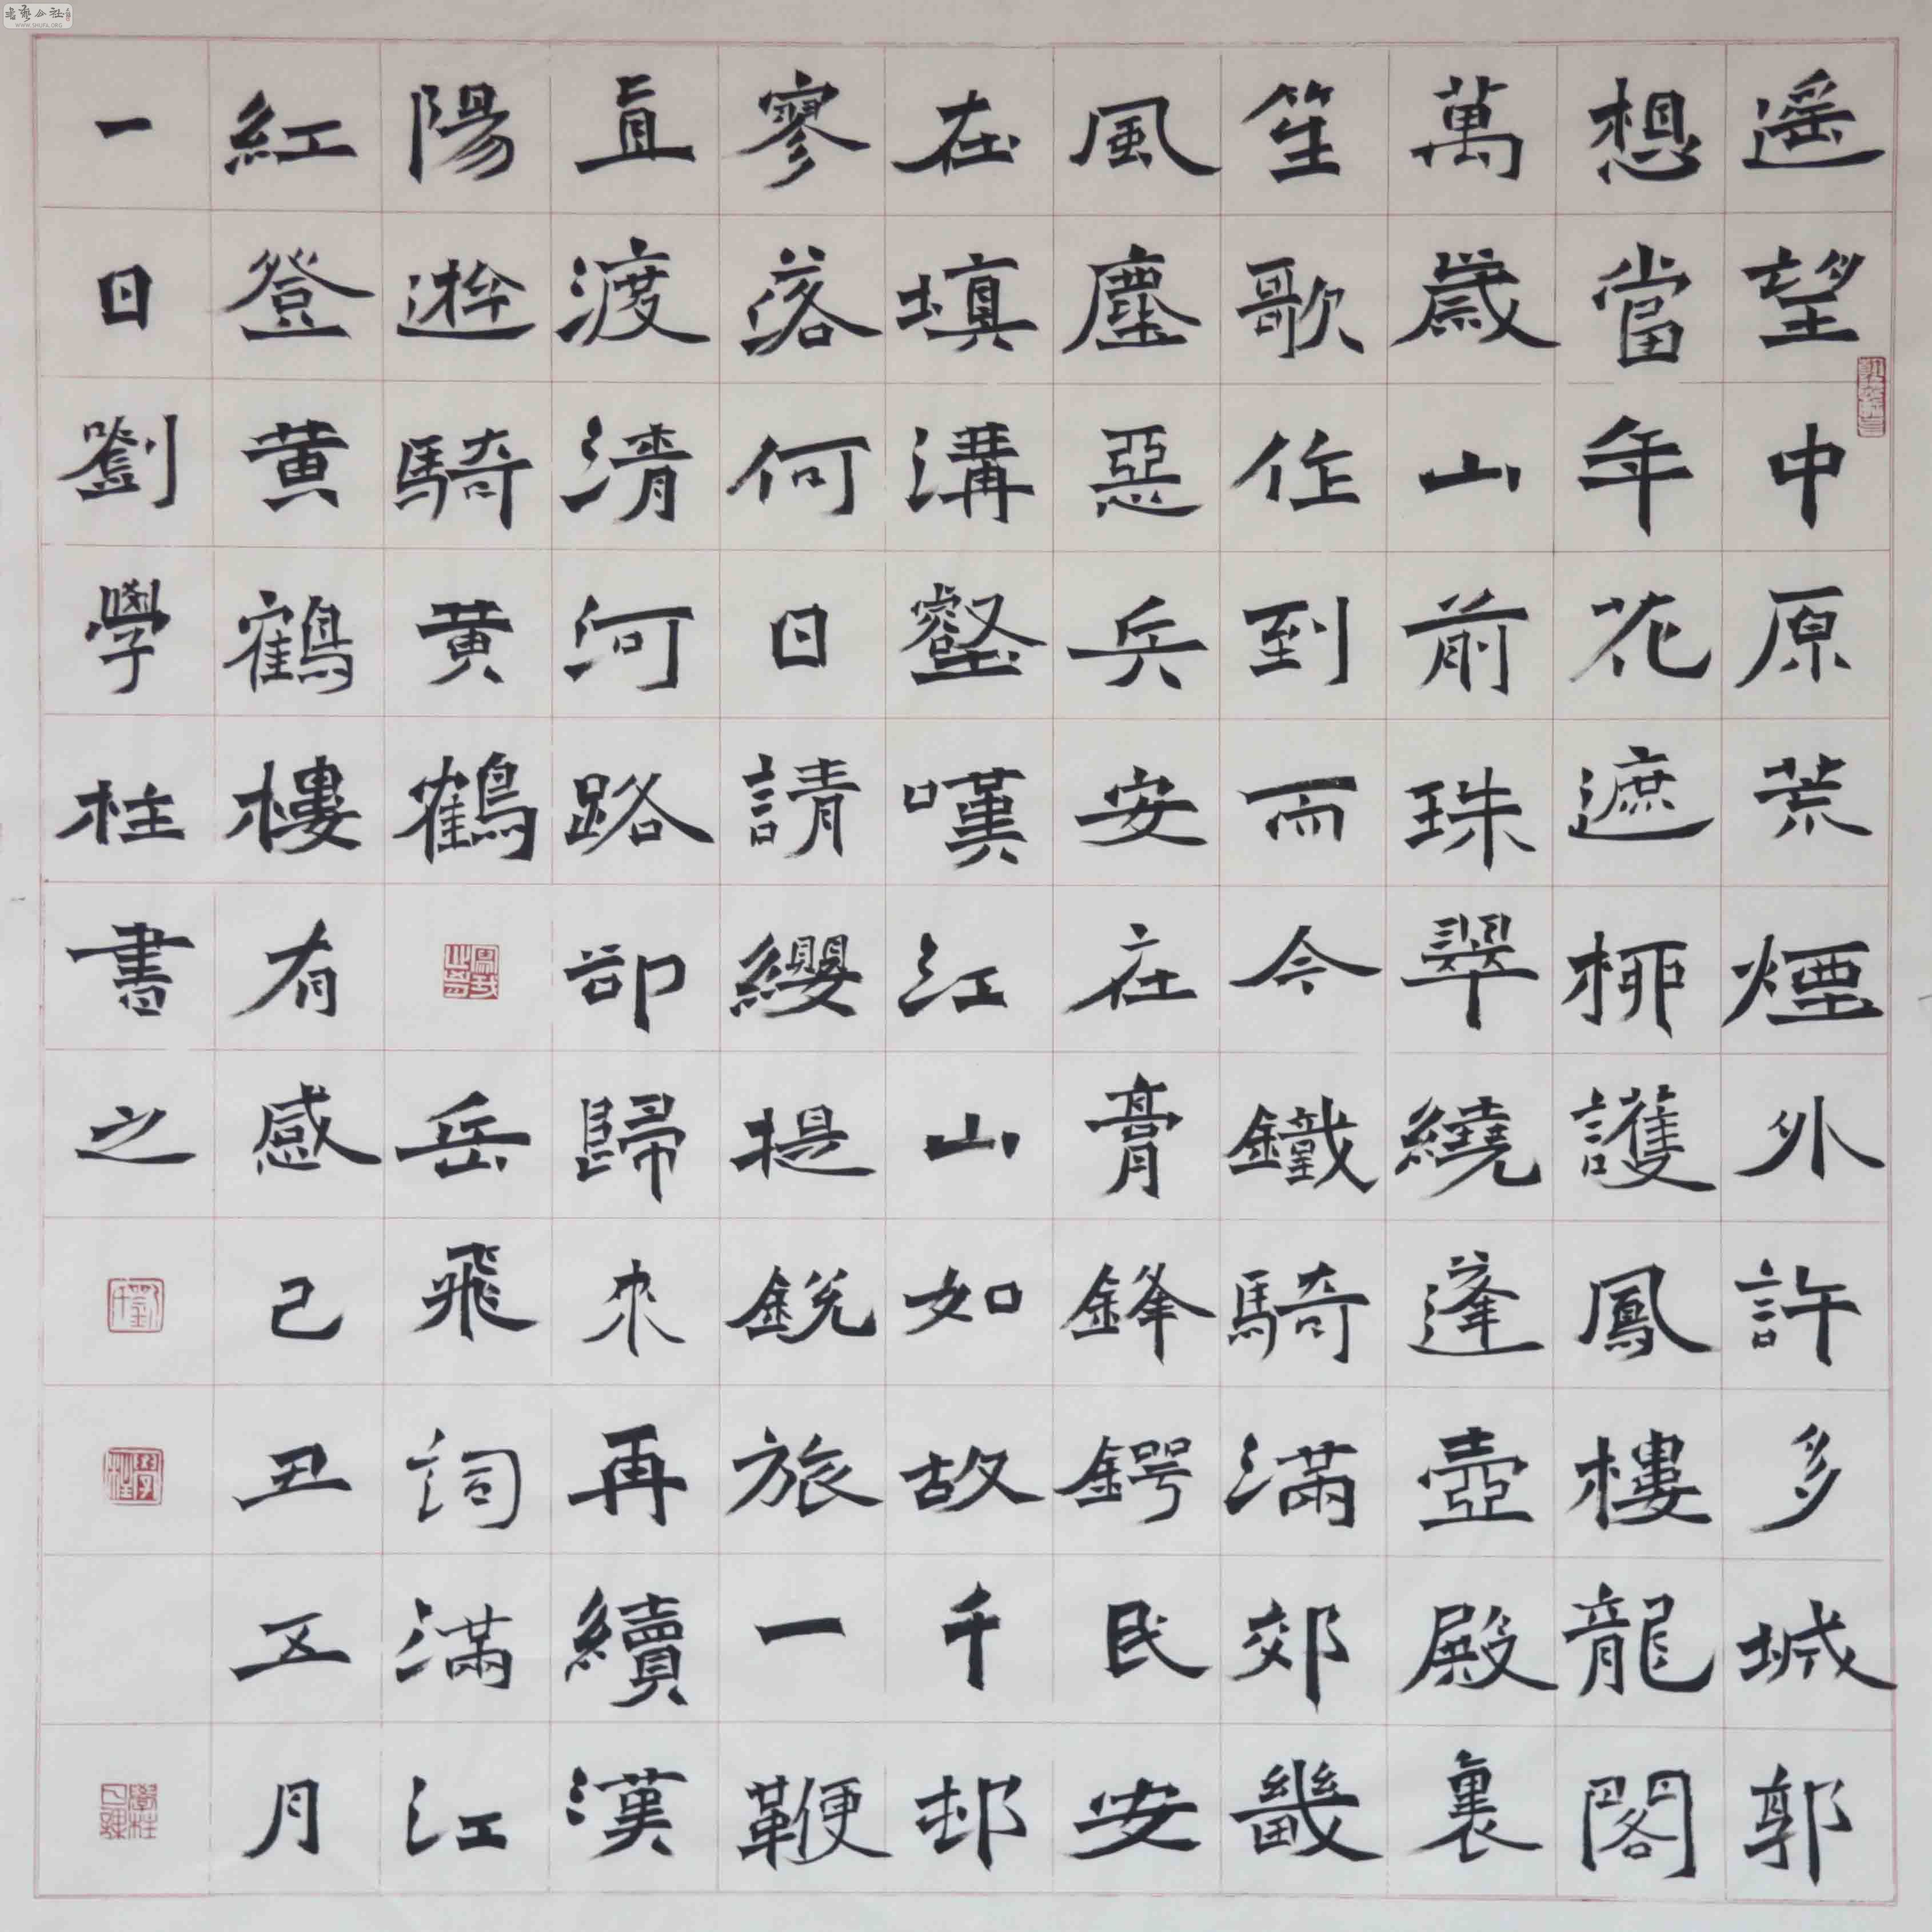 遥望中原荒煙外許多城郭
想當年花遮柳護鳳樓龍閣
萬歲山前珠翠繞蓬壺殿裏
笙歌作到而今鐵騎滿郊畿
風塵惡兵安在膏鋒鍔民安
在填溝壑嘆江山如故千邨
寥落何日請纓提銳旅一鞭
直渡清河路却歸來再續漢
陽遊騎黄鶴岳飛詞滿江
紅登黄鶴樓有感己丑五月
一日劉學柱書之
學柱
WWW.SHUFA.ORG